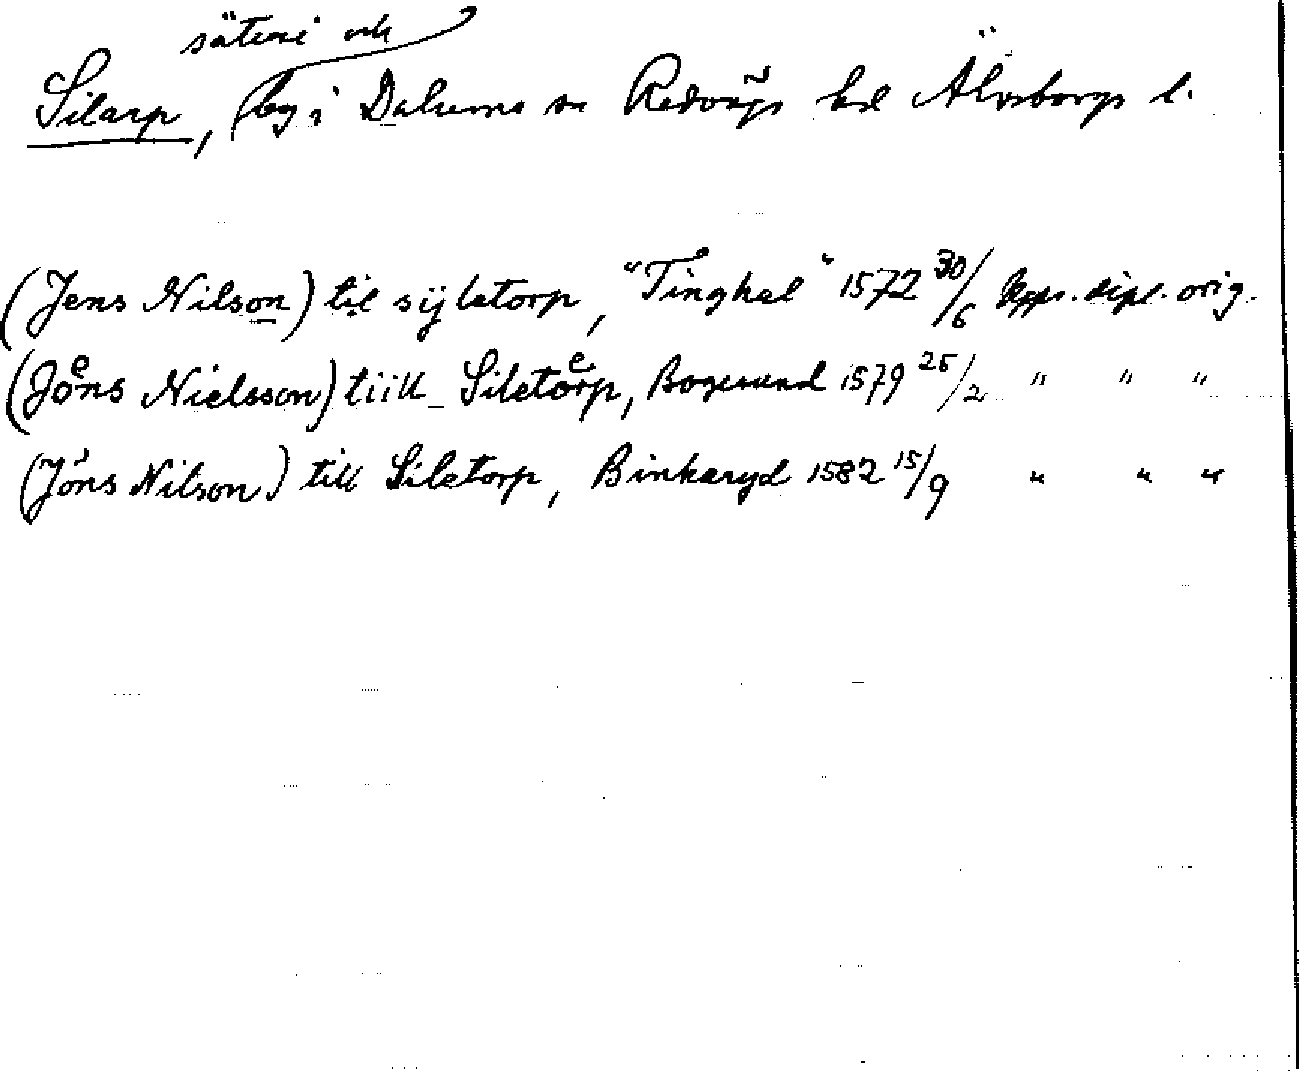 säteri och
Silarp, by i Dalums sn Redvägs hd Älvsborgs l.
(Jens Nilson) til sÿletorp, "Tinghal" 1572 30/6 Upps. dipl. orig.
(Joͤns Nielsson) tiill Siletoͤrp, Bogesund 1579 25/2 " " "
(Jöns Nilson) till Siletorp, Binkaryd 1582 15/9 " " "